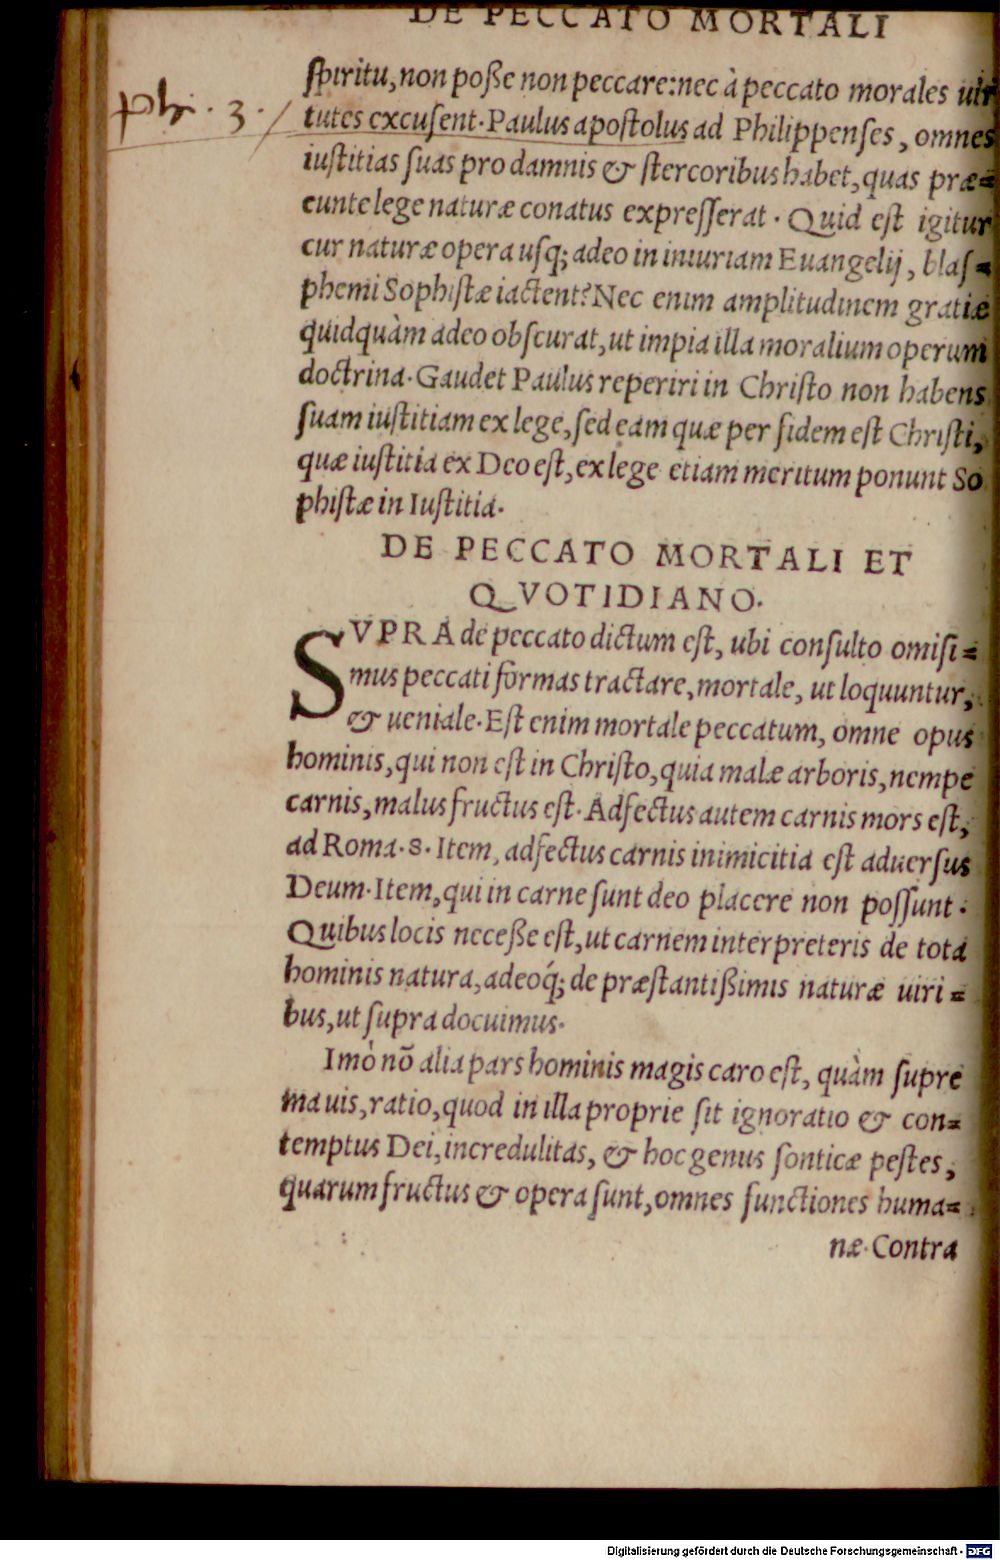 DE PECCATO MORTALI
ſpiritu, non poße non peccare: nec à peccato morales uir
ph. 3. /
tutes excuſent. Paulus apoſtolus ad Philippenſes, omnes
iuſtitias ſuas pro damnis & ſtercoribus habet, quas præ=
eunte lege naturæ conatus expreſſerat. Quid eſt igitur
cur naturæ opera uſq; adeo in iniuriam Euangelij, blaſ=
phemi Sophiſtæ iactent? Nec enim amplitudinem gratiæ
quidquàm adeo obſcurat, ut impia illa moralium operum
doctrina. Gaudet Paulus reperiri in Chriſto non habens
ſuam iuſtitiam ex lege, ſed eam quæ per fidem eſt Chriſti,
quæ iuſtitia ex Deo eſt, ex lege etiam meritum ponunt So
phiſtæ in Iuſtitia.
DE PECCATO MORTALI ET
QVOTIDIANO.
SVPRA de peccato dictum eſt, ubi conſulto omiſi=
mus peccati formas tractare, mortale, ut loquuntur,
& ueniale. Eſt enim mortale peccatum, omne opus
hominis, qui non eſt in Chriſto, quia malæ arboris, nempe
carnis, malus fructus eſt. Adfectus autem carnis mors eſt,
ad Roma. 8. Item, adfectus carnis inimicitia eſt aduerſus
Deum. Item, qui in carne ſunt deo placere non poſſunt.
Quibus locis neceße eſt, ut carnem interpreteris de tota
hominis natura, adeoq́; de præſtantißimis naturæ uiri=
bus, ut ſupra docuimus.
Imò nō alia pars hominis magis caro eſt, quàm ſupre
ma uis, ratio, quod in illa proprie ſit ignoratio & con=
temptus Dei, incredulitas, & hoc genus ſonticæ peſtes,
quarum fructus & opera ſunt, omnes functiones huma=
næ. Contra
Digitalisierung gefördert durch die Deutsche Forschungsgemeinschaft - DFG